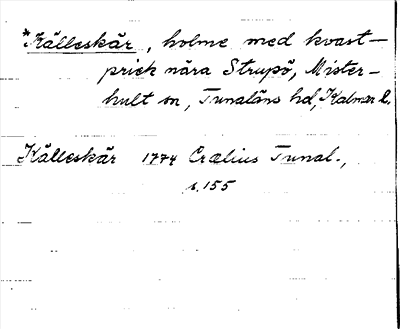 *Källeskär, holme med kvast-
prick nära Strupö, Mister-
hult sn, Tunaläns hd, Kalmar l.
Källeskär 1774 Crælius Tunal.,
s. 155